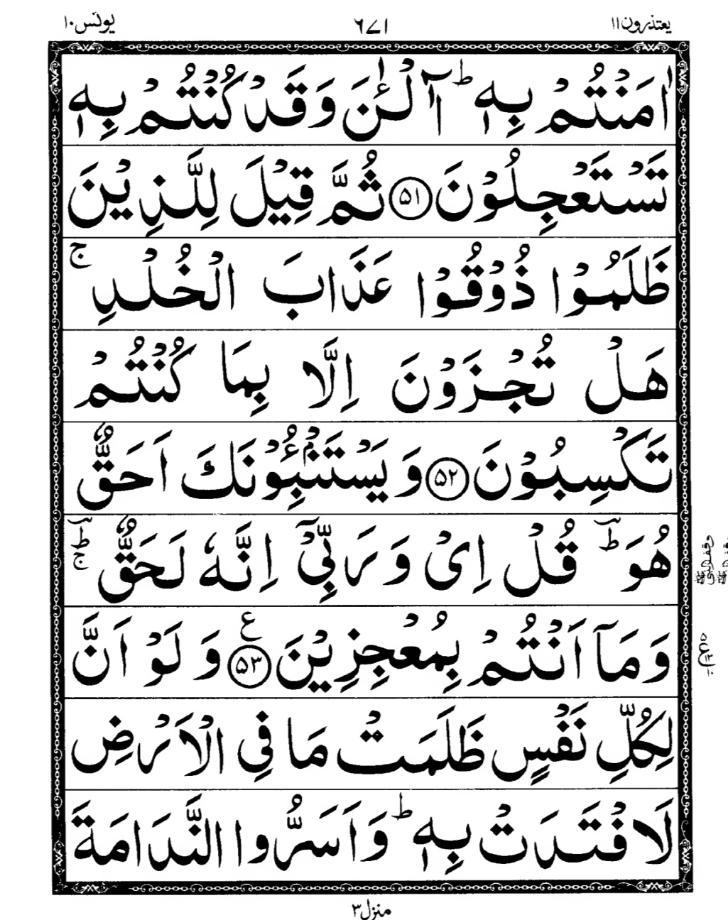 یعتذرون ۱۱ ۶۷۱ یونس ۱۰
اٰمَنْتُمْ بِهٖ ؕ آٰلْـٰٔنَ وَقَدْ كُنْتُمْ بِهٖ
تَسْتَعْجِلُوْنَ ۵۱ ثُمَّ قِيْلَ لِلَّذِيْنَ
ظَلَمُوْا ذُوْقُوْا عَذَابَ الْخُلْدِ ۚ
هَلْ تُجْزَوْنَ اِلَّا بِمَا كُنْتُمْ
تَكْسِبُوْنَ ۵۲ وَيَسْتَنْۢبِـُٔوْنَكَ اَحَقٌّ
هُوَ ؕ قُلْ اِىْ وَرَبِّىْۤ اِنَّهٗ لَحَقٌّ ؕ ۚ
وَمَاۤ اَنْتُمْ بِمُعْجِزِيْنَ ۵۳ ع وَلَوْ اَنَّ
لِكُلِّ نَفْسٍ ظَلَمَتْ مَا فِى الْاَرْضِ
لَافْتَدَتْ بِهٖ ؕ وَاَسَرُّوا النَّدَامَةَ
منزل ۳